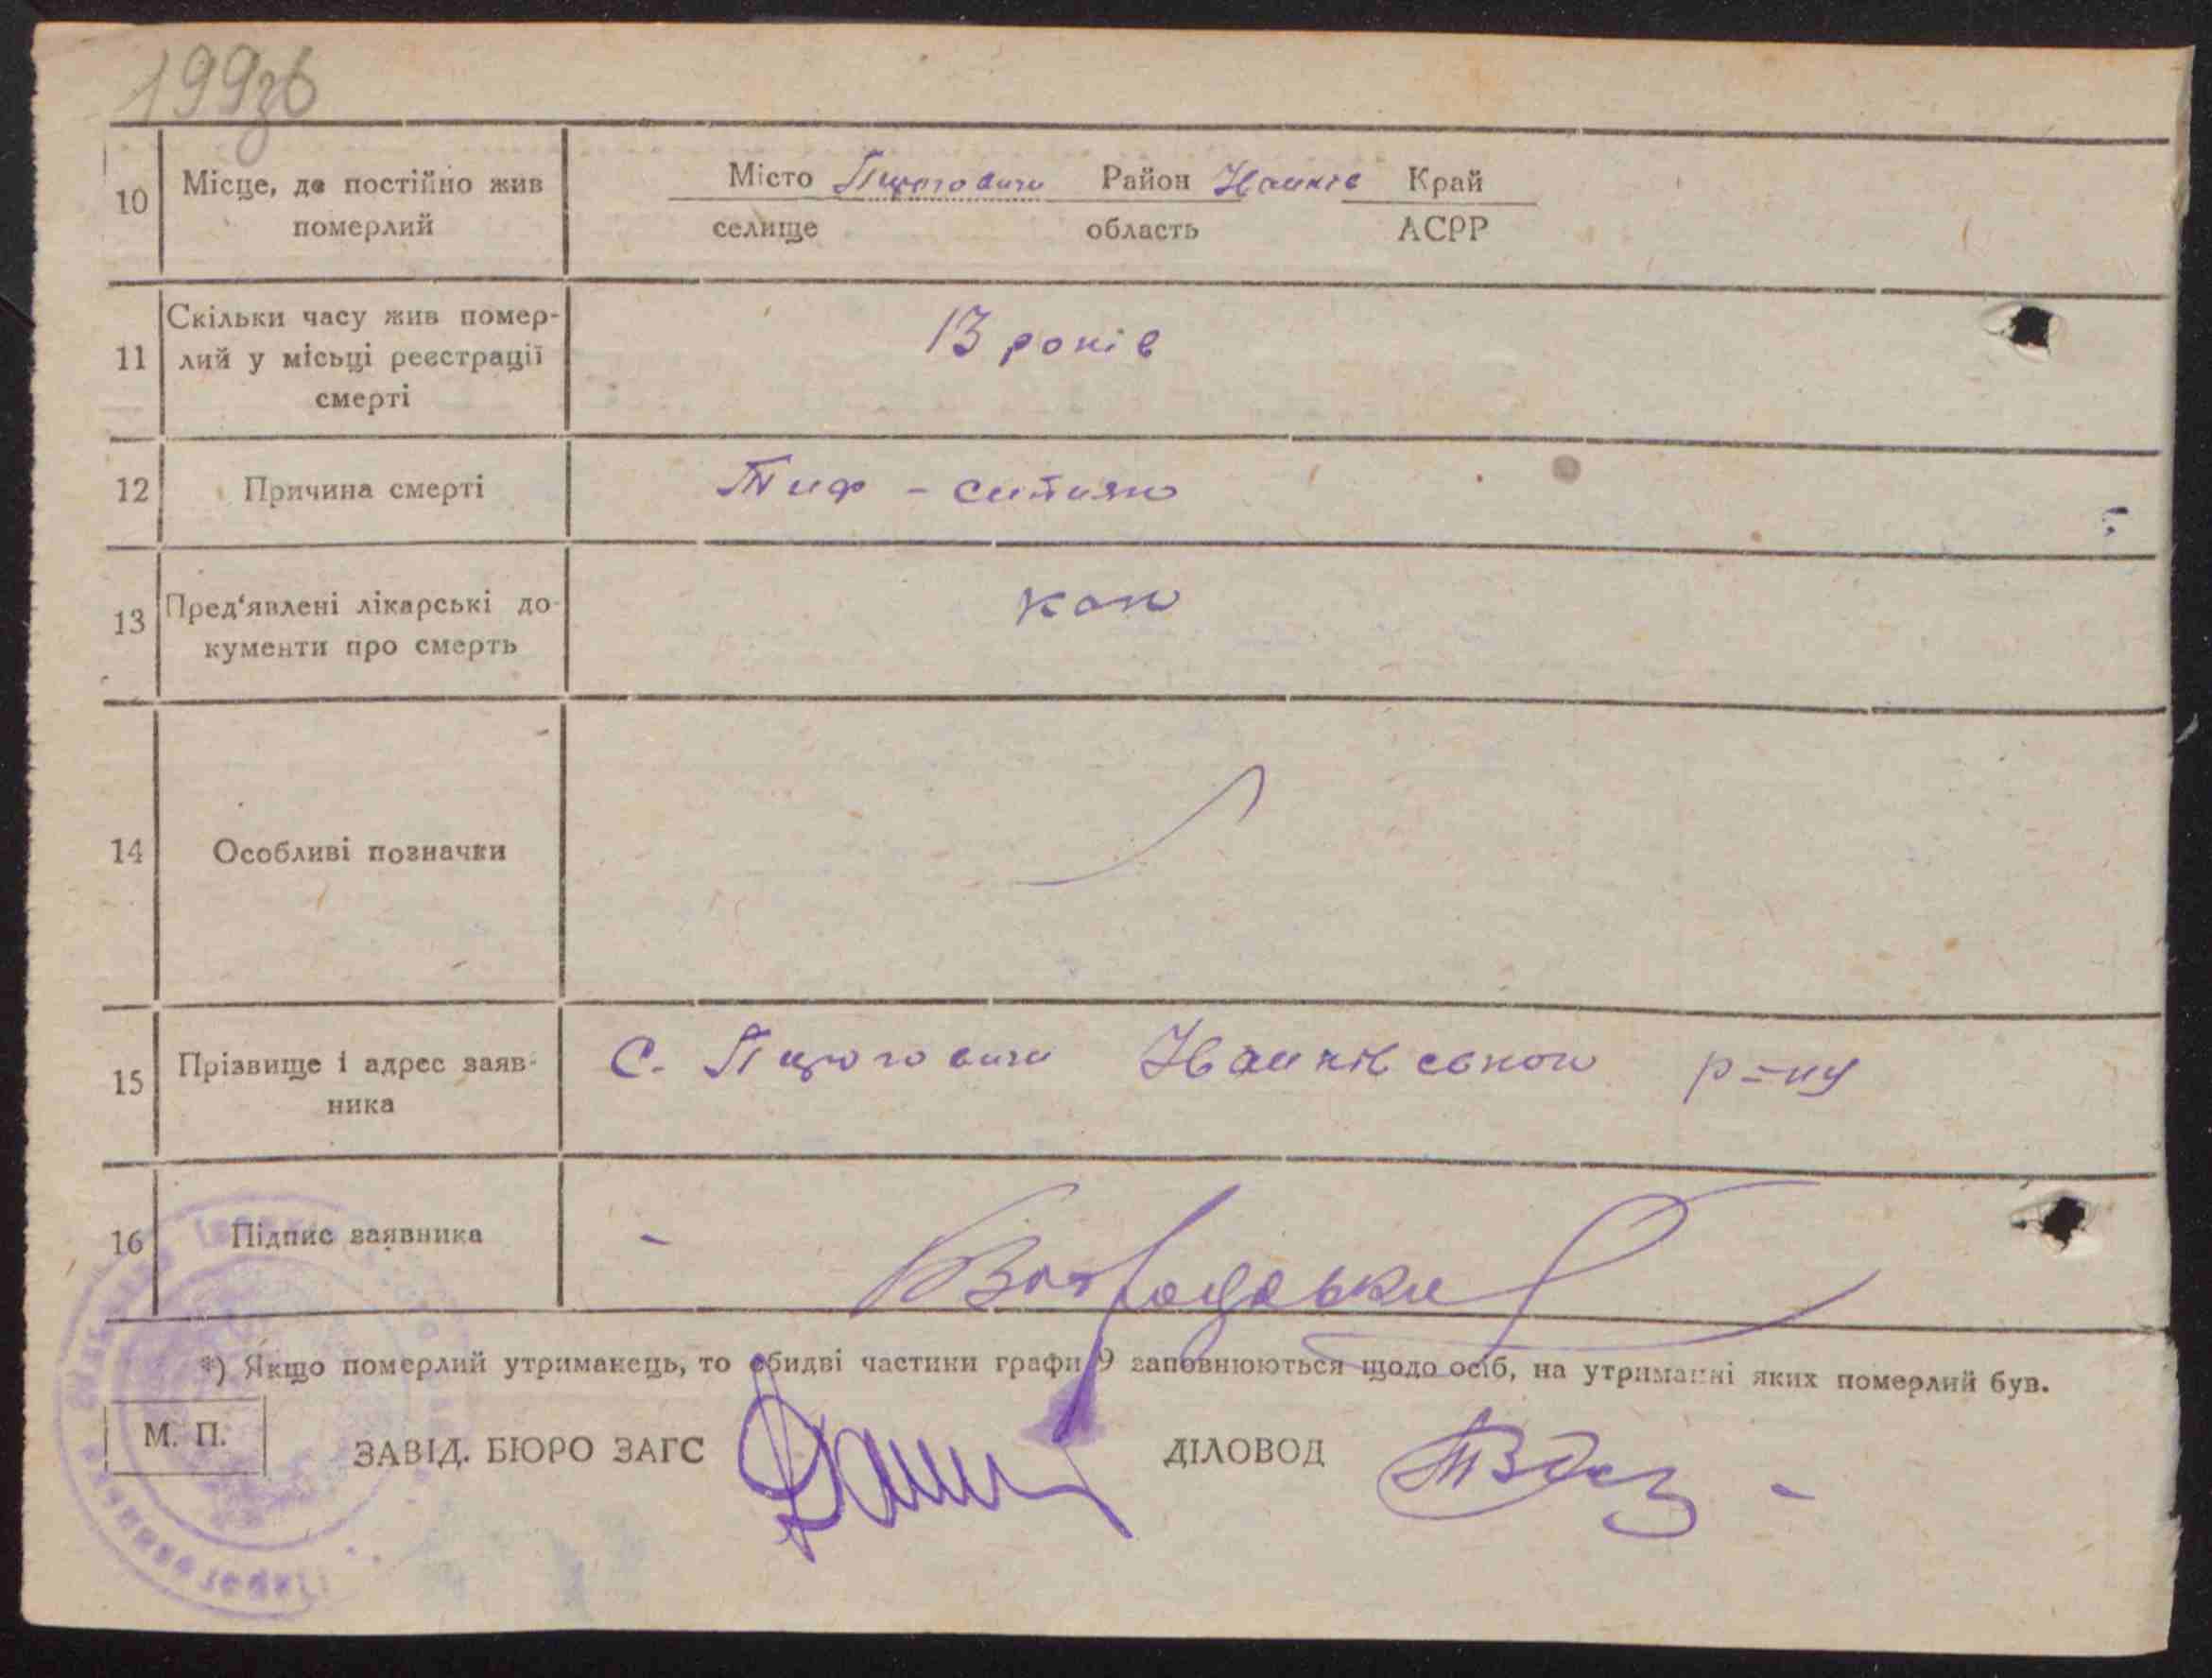 199зв
10 Місце, де постійно жив померлий
Місто Пирогович Район Іванків Край
селище область АСРР
11 Скільки часу жив помер-
лий у місьці реєстрації
смерті
13 років
12 Причина смерті
Тиф -
13 Пред'явлені лікарські до-
кументи про смерть
14 Особливі позначки
15 Прізвище і адрес заяв-
ника
С. Пироговичи Іванківського р-ну
16 Підпис заявника
*) Якщо померлий утриманець, то обидві частини графи 9 заповнюються щодо осіб, на утриманні яких померлий був.
М. П.
ЗАВІД. БЮРО ЗАГС
ДІЛОВОД